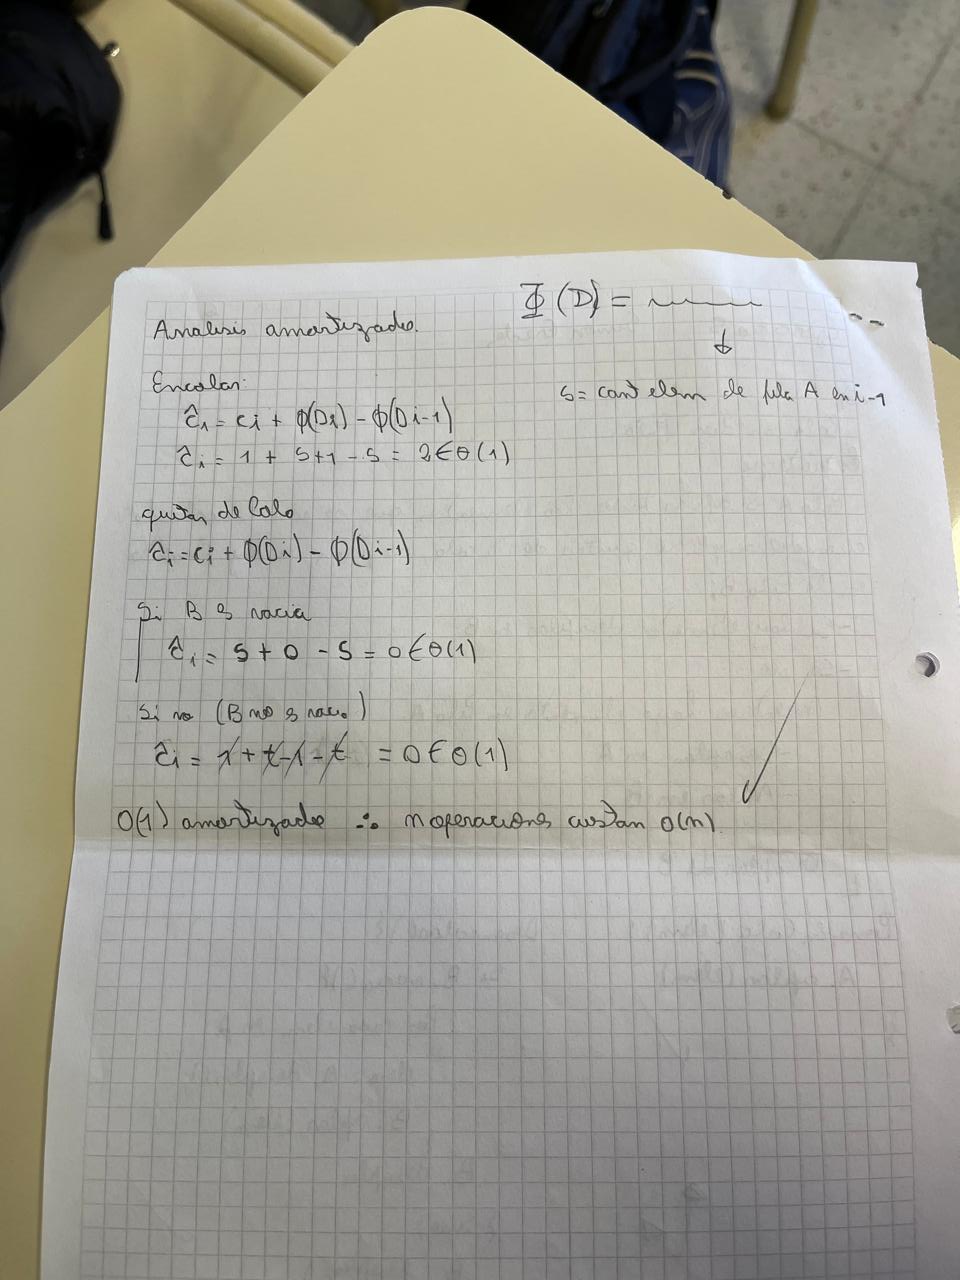 Φ(D) =
Analisis amortizado.
↓
s = cant elem de pila A en i-1
Encolar:
ĉi = ci + ϕ(Di) - ϕ(Di-1)
ĉi = 1 + s+1 - s = 2 ∈ Θ(1)
quitar de Cola
ĉi = ci + ϕ(Di) - ϕ(Di-1)
Si B es vacia
ĉi = s + 0 - s = 0 ∈ Θ(1)
Si no (B no es vac.)
ĉi = 1 + t - 1 - t = 0 ∈ Θ(1)
O(1) amortizado ∴ n operaciones custan O(n).